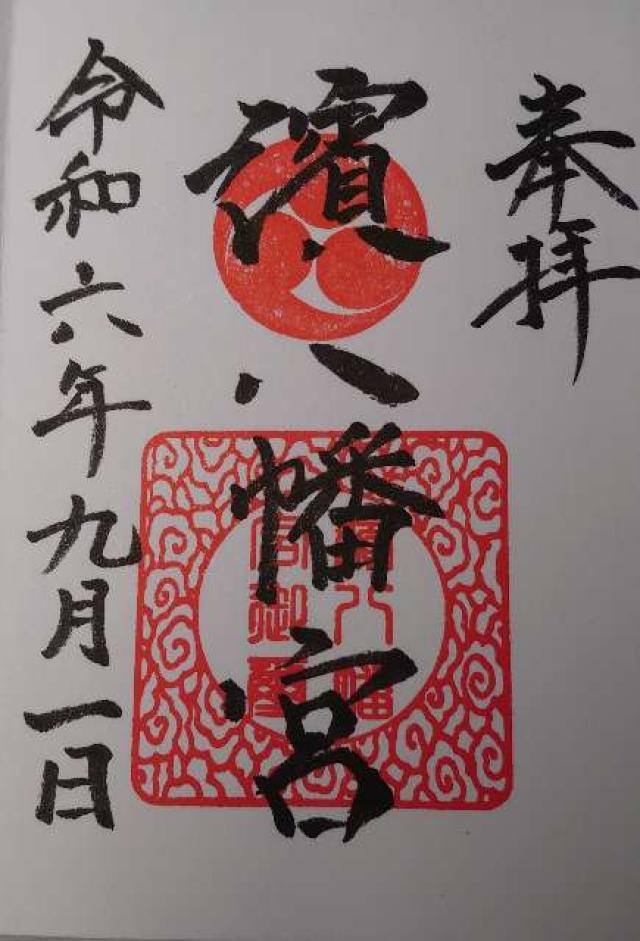 奉拝
濱八幡宮
令和六年九月一日